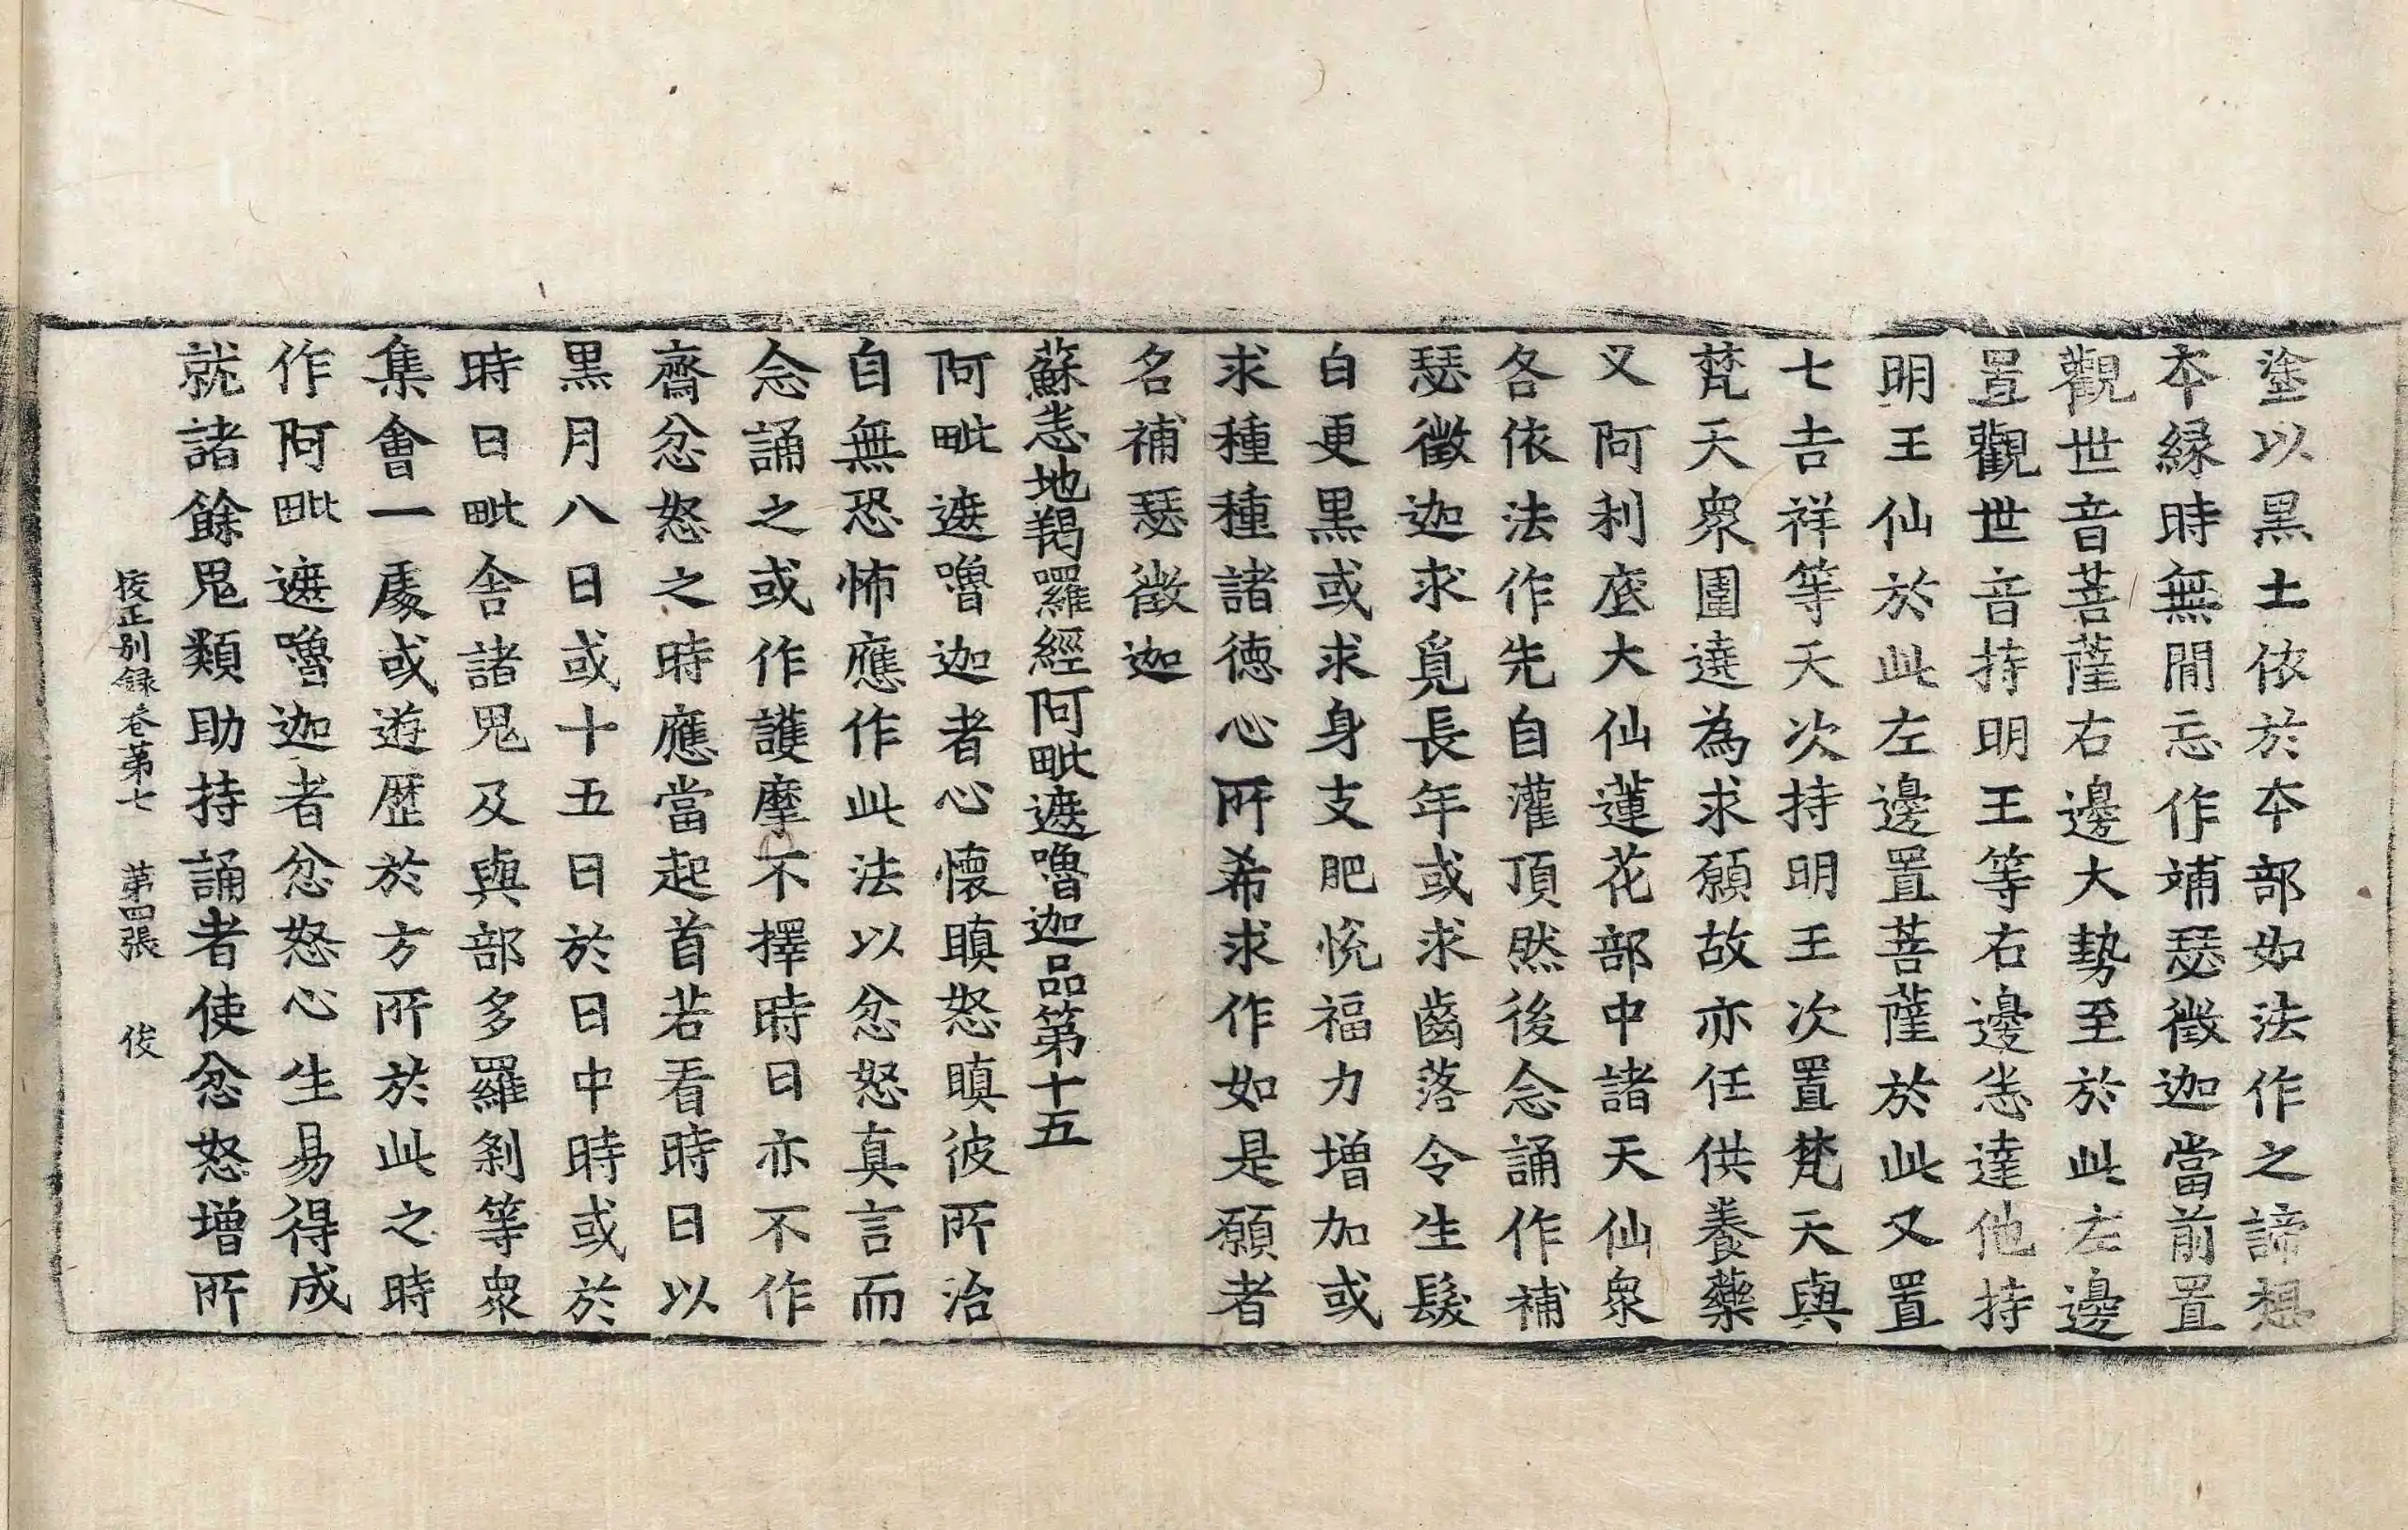 塗以黑土依於本部如法作之諦想
本緣時無閒忘作補瑟徵迦當前置
觀世音菩薩右邊大勢至於此左邊
置觀世音持明王等右邊悉達他持
明王仙於此左邊置菩薩於此又置
七吉祥等天次持明王次置梵天與
梵天衆圍遶為求願故亦任供養藥
又阿利底大仙蓮花部中諸天仙衆
各依法作先自灌頂然後念誦作補
瑟徵迦求覓長年或求齒落令生髮
白更黑或求身支肥悅福力增加或
求種種諸德心所希求作如是願者
名補瑟徵迦
蘇悉地羯囉經阿毗遮嚕迦品第十五
阿毗遮嚕迦者心懷瞋怒瞋彼所治
自無恐怖應作此法以忿怒真言而
念誦之或作護摩不擇時日亦不作
齋忿怒之時應當起首若看時日以
黑月八日或十五日於日中時或於
時日毗舍諸鬼及與部多羅剎等衆
集會一處或遊歷於方所於此之時
作阿毗遮嚕迦者忿怒心生易得成
就諸餘鬼類助持誦者使忿怒增所
挍正別錄卷第七 第四張 俊